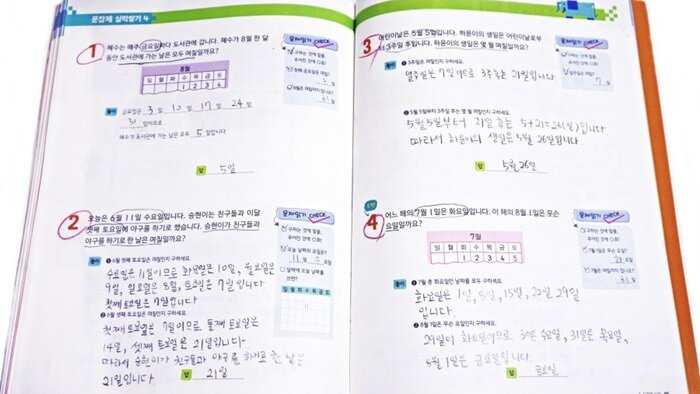 문장제 실력쌓기 4
1 혜수는 매주 금요일마다 도서관에 갑니다. 혜수가 8월 한 달
동안 도서관에 가는 날은 모두 며칠일까요?
8월
일 월 화 수 목 금 토
1 2 3 4
문제읽기 CHECK
풀이 금요일은 3일 10일 17일 24일
31일이므로
혜수가 도서관에 가는 날은 모두 5일입니다.
답 5일
2 오늘은 6월 11일 수요일입니다. 승현이는 친구들과 이달
셋째 토요일에 야구를 하기로 했습니다. 승현이가 친구들과
야구를 하기로 한 날은 며칠일까요?
문제읽기 CHECK
오늘 날짜와 요일은?
11일 수요일
달력에 오늘 날짜를
쓰면?
일 월 화 수 목 금 토
11
풀이 ❶ 6월 첫째 토요일은 며칠인지 구하세요.
수요일은 11일이므로 화요일은 10일, 월요일은
9일, 일요일은 8일, 토요일은 7일입니다
첫째 토요일은 7일입니다
첫째 토요일은 7일이므로 둘째 토요일은
14일, 셋째 토요일은 21일입니다.
따라서 승현이가 친구들과 야구를 하기로 한 날은
21일입니다
답 21일
3 어린이날은 5월 5일입니다. 하윤이의 생일은 어린이날로부
터 3주일 후입니다. 하윤이의 생일은 몇 월 며칠일까요?
문제읽기 CHECK
풀이 ❶ 3주일은 며칠인지 구하세요.
일주일은 7일이므로 3주일은 21일입니다
❷ 5월 5일부터 3주일 후는 몇 월 며칠인지 구하세요.
5월 5일부터 21일 후는 5+21=26(일)입니다
따라서 하윤이의 생일은 5월 26일입니다
답 5월 26일
4 어느 해의 7월 1일은 화요일입니다. 이 해의 8월 1일은 무슨
요일일까요?
7월
일 월 화 수 목 금 토
1 2 3 4 5
문제읽기 CHECK
7월 1일은 무슨 요일?
7월은 며칠까지 있나?
31일
풀이 ❶ 7월 중 화요일인 날짜를 모두 구하세요.
화요일은 1일, 8일, 15일, 22일 29일
입니다.
❷ 8월 1일은 무슨 요일인지 구하세요.
29일이 화요일이므로 30일 수요일, 31일은 목요일,
8월 1일은 금요일입니다.
답 금요일